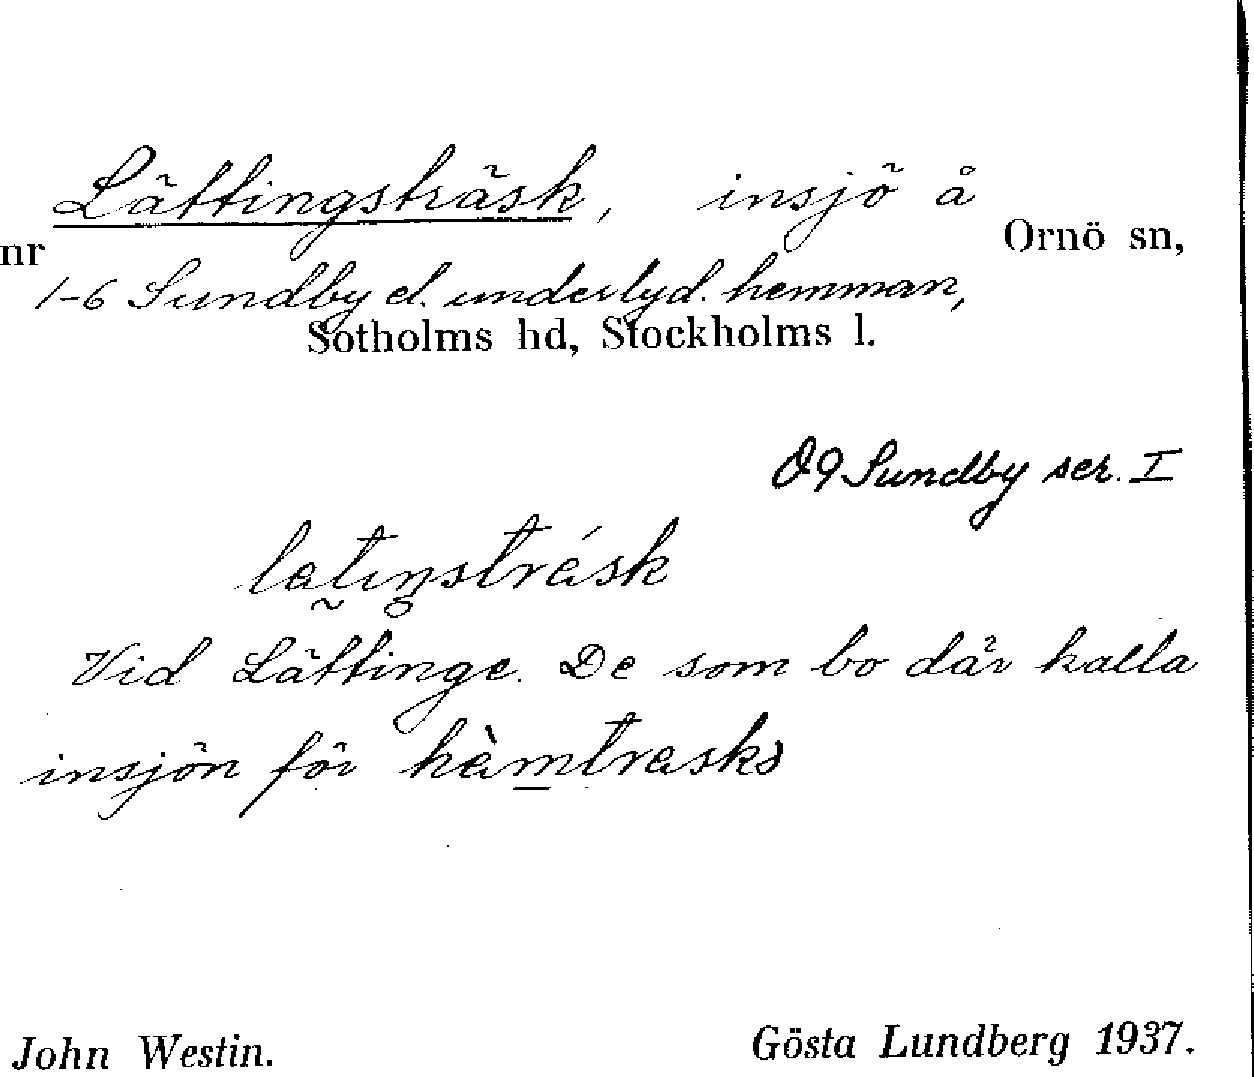 Lättingsträsk, insjö å
nr Ornö sn,
1-6 Sundby el. underlyd. hemman,
Sotholms hd, Stockholms l.
Ö9 Sundby ser. I
latıŋstrásk
Vid Lättinge. De som bo där kalla
insjön för hàmtraskə
John Westin. Gösta Lundberg 1937.